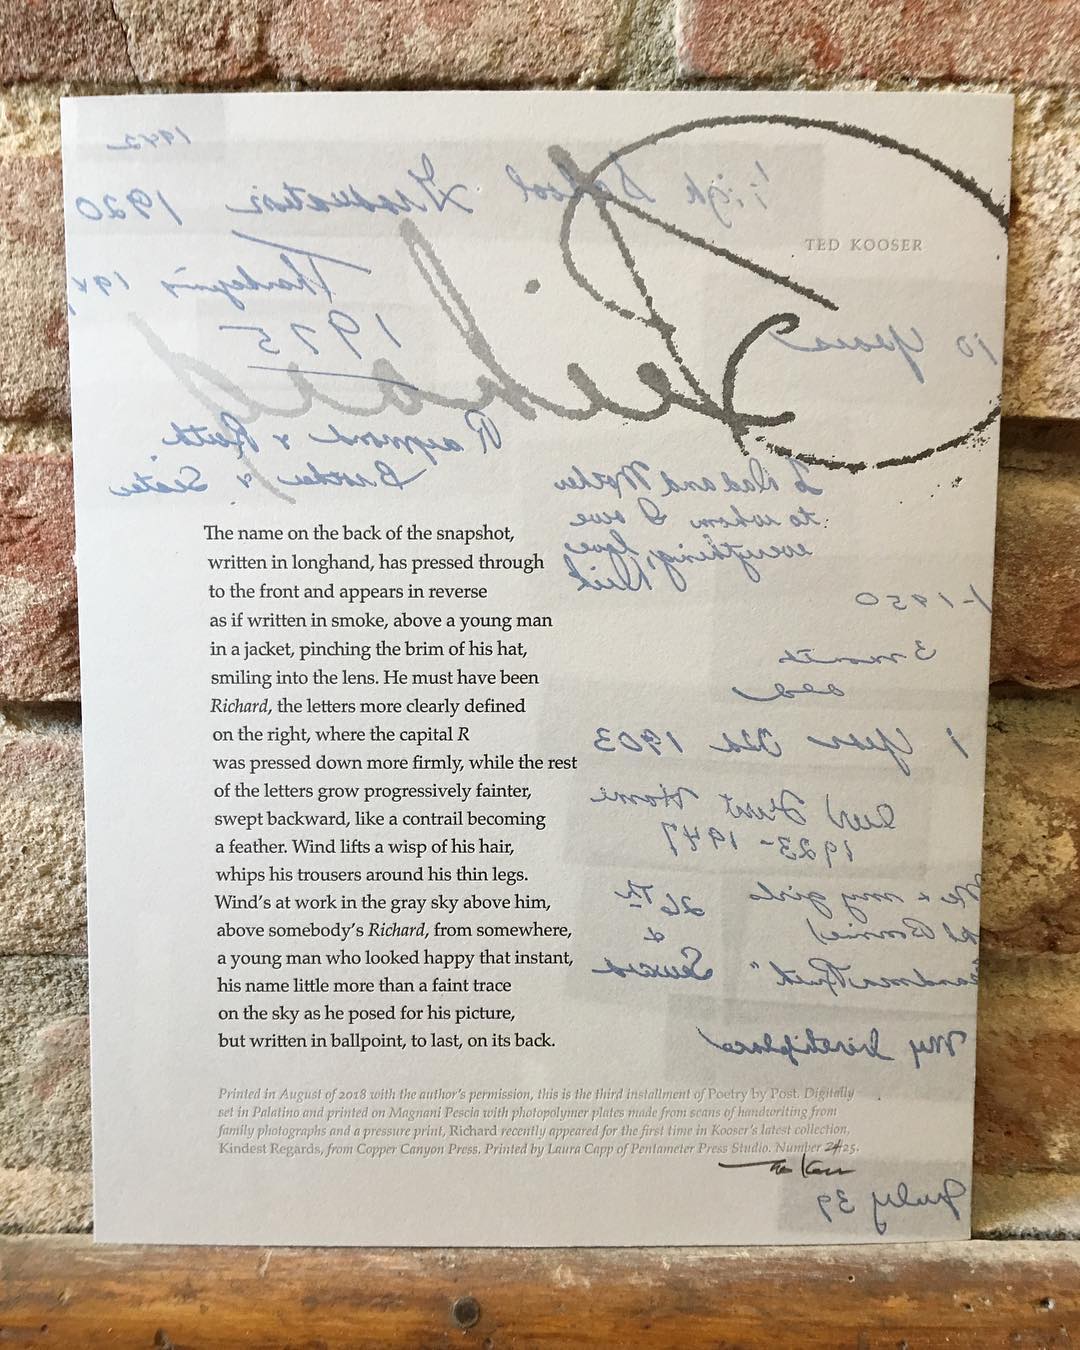 1942
High School Graduation 1920
TED KOOSER
Thanksgiving 194
1925
10 years
Richard
Raymond & Ruth
Brother & Sister
To Dad and Mother
to whom I owe
everything, love
Dick
1-1950
3 months
old
1 year old 1903
Our First Home
1923-1947
Me & my girls
26th
&
Seward
Grandma Ruth"
My birthplace
The name on the back of the snapshot,
written in longhand, has pressed through
to the front and appears in reverse
as if written in smoke, above a young man
in a jacket, pinching the brim of his hat,
smiling into the lens. He must have been
Richard, the letters more clearly defined
on the right, where the capital R
was pressed down more firmly, while the rest
of the letters grow progressively fainter,
swept backward, like a contrail becoming
a feather. Wind lifts a wisp of his hair,
whips his trousers around his thin legs.
Wind's at work in the gray sky above him,
above somebody's Richard, from somewhere,
a young man who looked happy that instant,
his name little more than a faint trace
on the sky as he posed for his picture,
but written in ballpoint, to last, on its back.
Printed in August of 2018 with the author's permission, this is the third installment of Poetry by Post. Digitally
set in Palatino and printed on Magnani Pescia with photopolymer plates made from scans of handwriting from
family photographs and a pressure print, Richard recently appeared for the first time in Kooser's latest collection,
Kindest Regards, from Copper Canyon Press. Printed by Laura Capp of Pentameter Press Studio. Number 24/25.
July 39